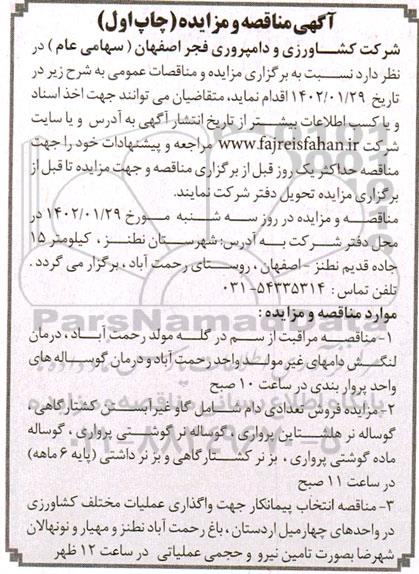 آگهی مناقصه و مزایده (چاپ اول)
شرکت کشاورزی و دامپروری فجر اصفهان ( سهامی عام ) در
نظر دارد نسبت به برگزاری مزایده و مناقصات عمومی به شرح زیر در
تاریخ ۱۴۰۲/۰۱/۲۹ اقدام نماید، متقاضیان می توانند جهت اخذ اسناد
و یا کسب اطلاعات بیشتر از تاریخ انتشار آگهی به آدرس و یا سایت
شرکت www.fajreisfahan.ir مراجعه و پیشنهادات خود را جهت
مناقصه حداکثر یک روز قبل از برگزاری مناقصه و جهت مزایده تا قبل از
برگزاری مزایده تحویل دفتر شرکت نمایند.
مناقصه و مزایده در روز سه شنبه مورخ ۱۴۰۲/۰۱/۲۹ در
محل دفتر شرکت به آدرس: شهرستان نطنز، کیلومتر ۱۵
جاده قدیم نطنز - اصفهان ، روستای رحمت آباد ، برگزار می گردد .
تلفن تماس : ۵۴۳۳۵۳۱۴-۰۳۱
موارد مناقصه و مزایده :
۱- مناقصه مراقبت از سم در گله مولد رحمت آباد ، درمان
لنگش دامهای غیر مولد واحد رحمت آباد و درمان گوساله های
واحد پروار بندی در ساعت ۱۰ صبح
۲- مزایده فروش تعدادی دام شامل گاو غیر آبستن کشتارگاهی ،
گوساله نر هلشتاین پرواری ، گوساله نر گوشتی پرواری ، گوساله
ماده گوشتی پرواری ، بز نر کشتارگاهی و بز نر داشتی (پایه ۶ ماهه)
در ساعت ۱۱ صبح
۳- مناقصه انتخاب پیمانکار جهت واگذاری عملیات مختلف کشاورزی
در واحدهای چهارمیل اردستان ، باغ رحمت آباد نطنز و مهیار و نونهالان
شهرضا بصورت تامین نیرو و حجمی عملیاتی در ساعت ۱۲ ظهر
ParsNamadData
پایگاه اطلاع رسانی مناقصه و مزایده